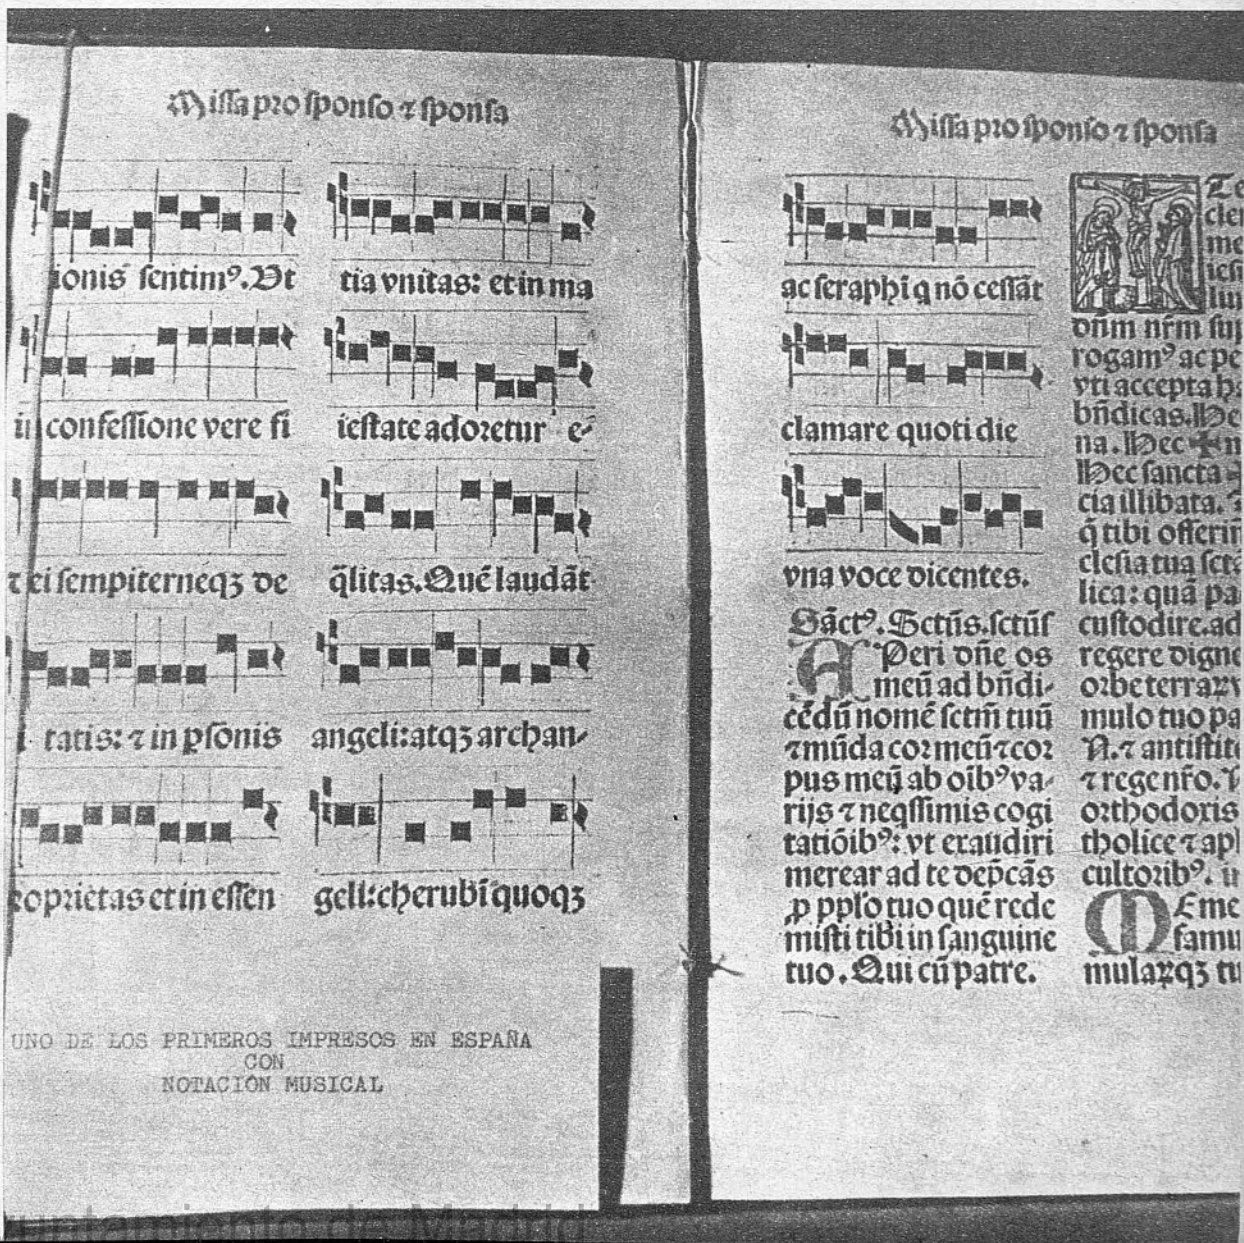 Missa pro sponso ⁊ sponsa
ionis sentimꝰ. Ut
in confessione vere si
⁊ ei sempiterneqꝫ de
tatis: ⁊ in ꝑsonis
roprietas et in essen
tia vnitas: et in ma
iestate adoretur e-
q̄litas. Quē laudāt
angeli: atqꝫ archan-
geli: cherubī quoqꝫ
UNO DE LOS PRIMEROS IMPRESOS EN ESPAÑA
CON
NOTACION MUSICAL
Missa pro sponso ⁊ sponsa
ac seraphī q nō cessāt
clamare quoti die
vna voce dicentes.
Sāctꝰ. Sctūs. sctūs
APeri dn̄e os
meū ad bn̄di-
cēdū nomē sctm̄ tuū
⁊ mūda cor meū ⁊ cor
pus meū ab oībꝰ va-
rijs ⁊ neqssimis cogi
tatiōibꝰ: vt exaudiri
merear ad te dep̄cās
ꝓ pplo tuo quē rede
misti tibi in sanguine
tuo. Qui cū patre.
Te
cle
me
iesū
dn̄m nr̄m
rogamꝰ ac pe
vti accepta
bn̄dicas. Hec
na. Hec ✠
Hec sancta
cia illibata.
q̄ tibi offeri
clesia tua
lica: quā pa
custodire. ad
regere digne
orbe terraꝝ
mulo tuo pa
N. ⁊ antistite
⁊ rege nr̄o.
orthodoxis
tholice ⁊ ap
cultoribꝰ.
MEme
famu
mulaꝝqꝫ tu
Ayuntamiento de Madrid